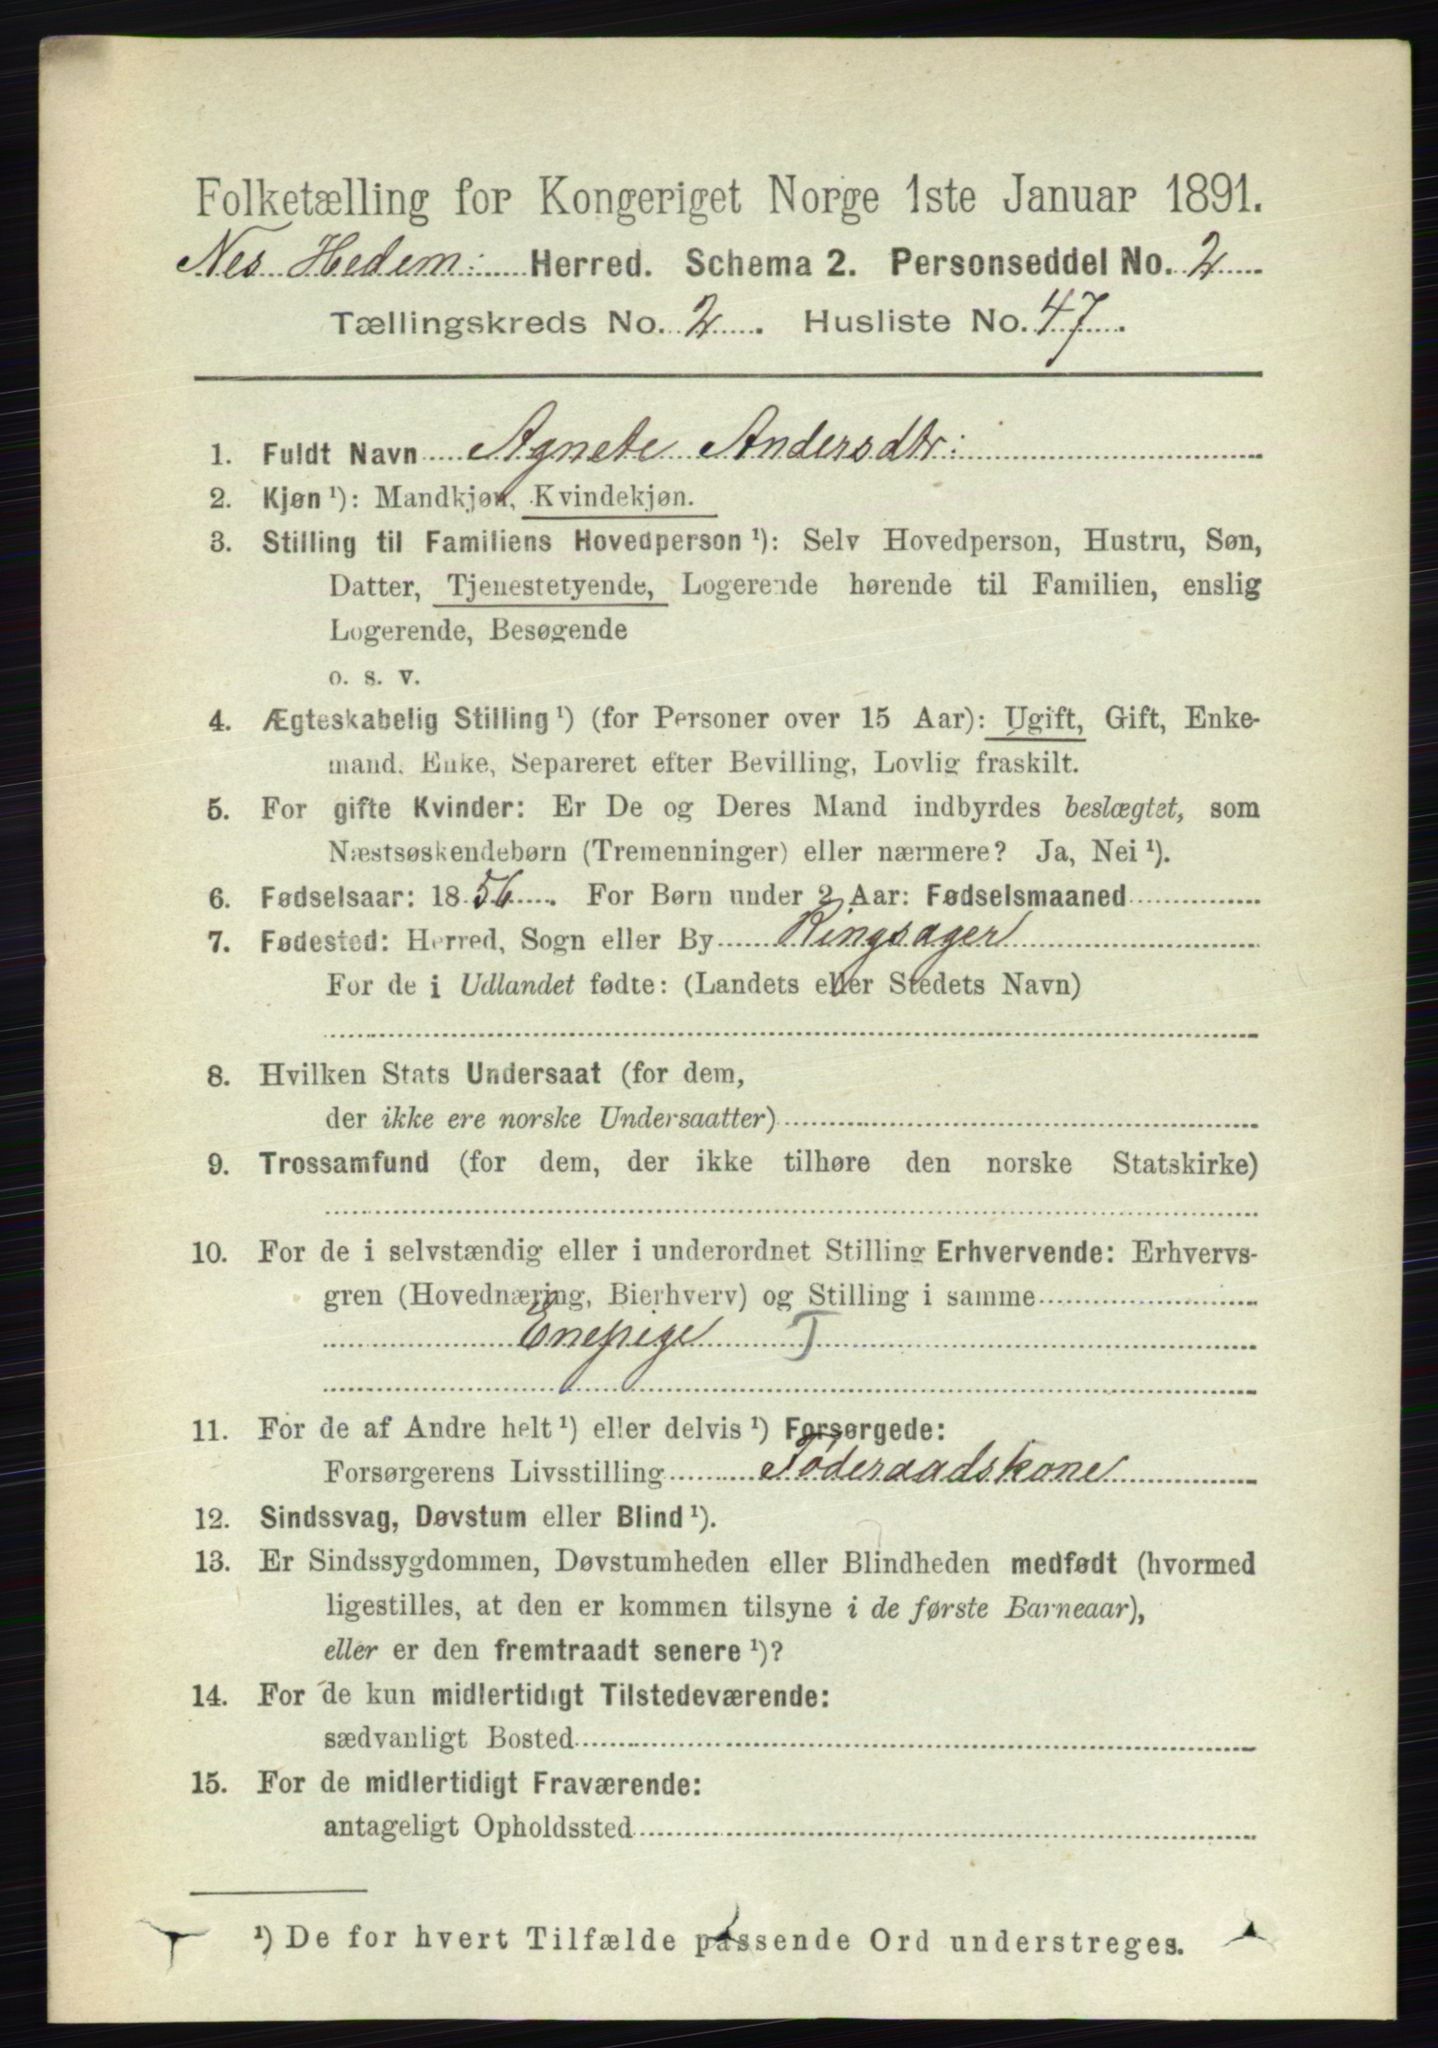 Folketælling for Kongeriget Norge 1ste Januar 1891.
Nes Hedem: Herred. Schema 2. Personseddel No. 2
Tællingskreds No. 2. Husliste No. 47.
1. Fuldt Navn Agnete Andersdtr:
2. Kjøn ¹): Mandkjøn, Kvindekjøn.
3. Stilling til Familiens Hovedperson ¹): Selv Hovedperson, Hustru, Søn,
Datter, Tjenestetyende, Logerende hørende til Familien, enslig
Logerende, Besøgende
o. s. v.
4. Ægteskabelig Stilling ¹) (for Personer over 15 Aar): Ugift, Gift, Enke-
mand, Enke, Separeret efter Bevilling, Lovlig fraskilt.
5. For gifte Kvinder: Er De og Deres Mand indbyrdes beslægtet, som
Næstsøskendebørn (Tremenninger) eller nærmere? Ja, Nei ¹).
6. Fødselsaar: 1856. For Børn under 2 Aar: Fødselsmaaned
7. Fødested: Herred, Sogn eller By Ringsager
For de i Udlandet fødte: (Landets eller Stedets Navn)
8. Hvilken Stats Undersaat (for dem,
der ikke ere norske Undersaatter)
9. Trossamfund (for dem, der ikke tilhøre den norske Statskirke)
10. For de i selvstændig eller i underordnet Stilling Erhvervende: Erhvervs-
gren (Hovednæring, Bierhverv) og Stilling i samme
Enepige T
11. For de af Andre helt ¹) eller delvis ¹) Forsørgede:
Forsørgerens Livsstilling Föderaadskone
12. Sindssvag, Døvstum eller Blind ¹).
13. Er Sindssygdommen, Døvstumheden eller Blindheden medfødt (hvormed
ligestilles, at den er kommen tilsyne i de første Barneaar),
eller er den fremtraadt senere ¹)?
14. For de kun midlertidigt Tilstedeværende:
sædvanligt Bosted
15. For de midlertidigt Fraværende:
antageligt Opholdssted
¹) De for hvert Tilfælde passende Ord understreges.